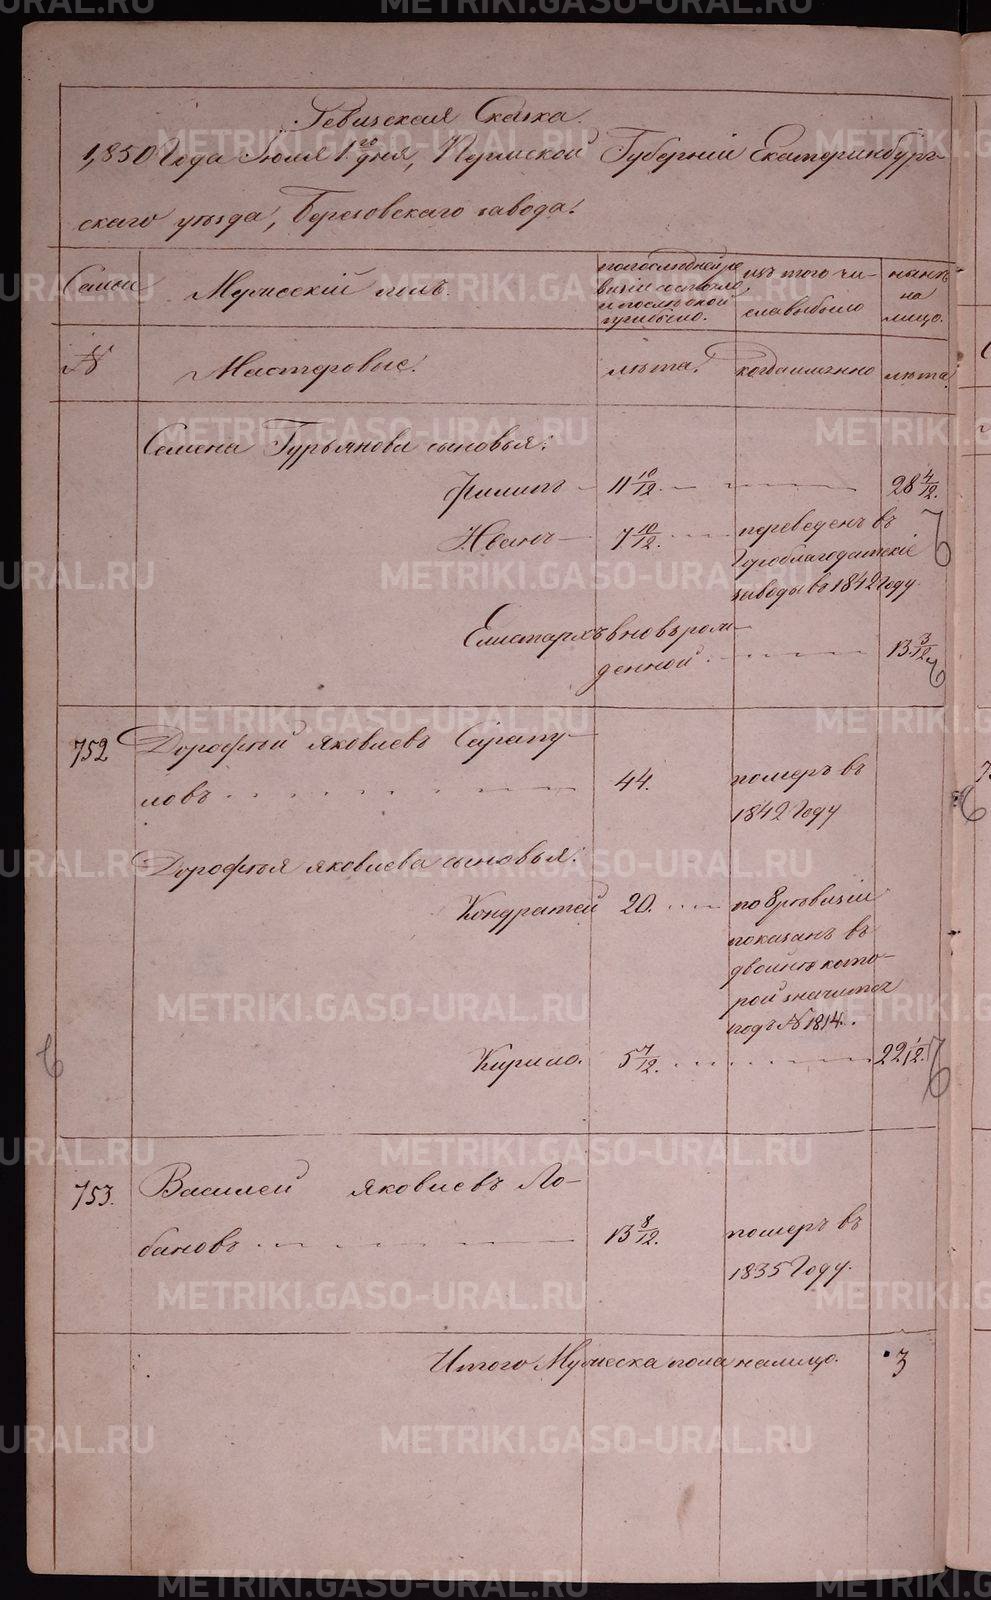 Ревизская Сказка.
1,850 Года Июля 1го дня, Пермской Губерніи Екатеринбург-
скаго уѣзда, Березовскаго завода.
Семьи
Мужескій полъ.
по последней ре
визіи состояло
и после оной
прибыло.
изъ того чи-
сла выбыло
нынѣ
на
лицо.
№
Мастеровые.
лѣта.
когда именно
лѣта.
Семена Гурьянова сыновья:
Филипъ 11 10/12. 28 4/12.
Иванъ 7 10/12. переведенъ въ
Гороблагодатскіе
заводы въ 1842 Году.
Елистархъ вновь рож-
денной. 13 3/12
752 Дорофѣй Яковлевъ Сарапу-
ловъ 44. померъ въ
1842 Году
Дорофѣя Яковлева сыновья:
Кондратей 20. по 8 ревизіи
показанъ въ
двойнѣ кото-
рой значится
подъ № 1814.
Кирило. 5 7/12. 22 1/12.
753. Василей Яковлевъ Ло-
бановъ 13 8/12. померъ въ
1835 Году.
Итого Мужеска пола налицо. 3
METRIKI.GASO-URAL.RU